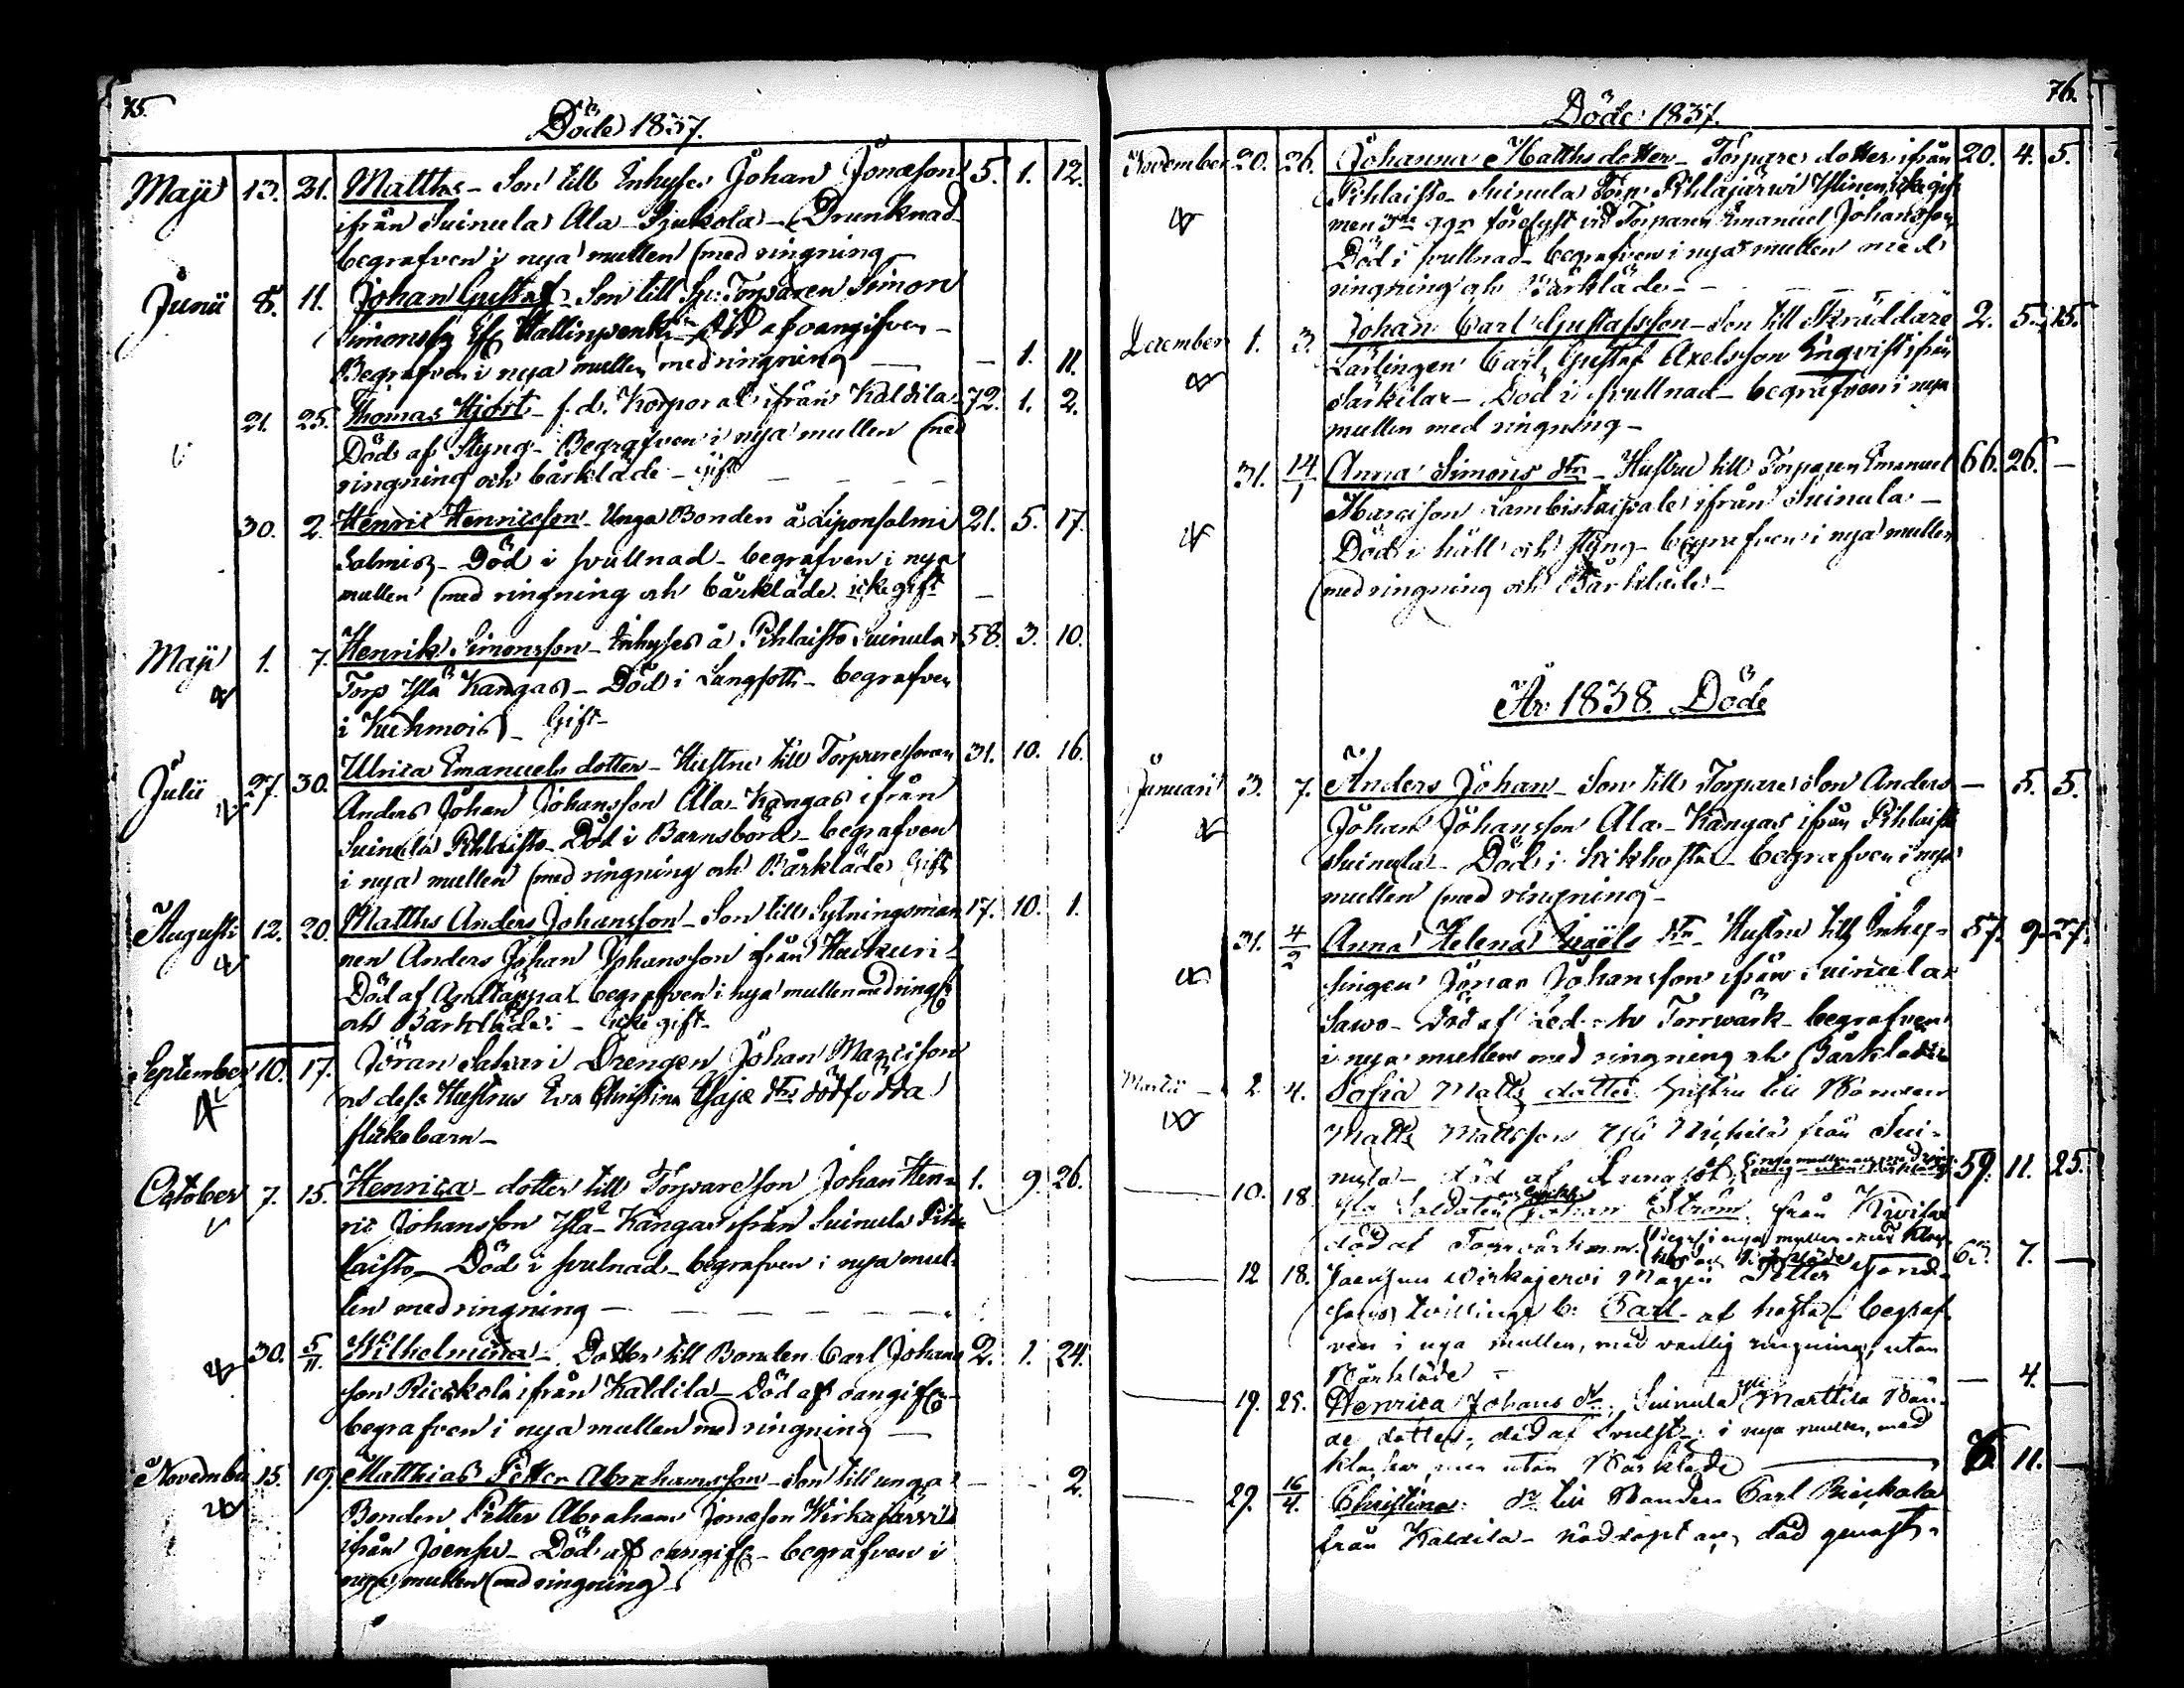 75.
Döde 1837.
Maji 13. 21. Matths - Son till Inhyses Johan Jonæson 5. 1. 12.
ifrån Suinula Ala - Drunknad
begrafven i nya mullen med ringning
Junii 8. 11. Johan Gustaf - Son till Torparen Simon
Simonson
Begrafven i nya mullen med ringning - 1. 11.
21. 25. Thomas Hjort - f.d. Korporal ifrån Kaldila 72. 1. 2.
Död af Styng - Begrafven i nya mullen med
ringning och bårkläde - Gift
30. 2. Henric Henricsson - Unga Bonden å Liponsalmi 21. 5. 17.
Salmis - Död i svullnad - begrafven i nya
mullen med ringning och bårkläde icke gift -
Maji 1. 7. Henrik Simonsson - Inhyses å Pihlaisto Suinula 58. 3. 10.
Torp Yla Kangas - Död i Lungsoth - begrafven
i Kuhmois - Gift -
Julii 27. 30. Ulrica Emanuels dotter - Hustru till Torparesonen 31. 10. 16.
Anders Johan Johansson Ala - Kangas ifrån
Suinula Pihlaisto - Död i Barnsbörd - begrafven
i nya mullen med ringning och Bårkläde Gift
Augusti 12. 20. Matths Anders Johansson - Son till Sytningsman 17. 10. 1.
nen Anders Johan Johansson ifrån Haukuri
Död af - begrafven i nya mullen med ring
och Bårkläde - icke gift -
September 10. 17. Jöran Sakari Drengen Johan Marcisson
och dess Hustrus Eva Christina Esajæ dtrs dödfödda
flickobarn -
October 7. 15. Henrica - dotter till Torpareson Johan Hen- 1. 9. 26.
ric Johansson Yla - Kangas ifrån Suinula Pih
laisto - Död i svulnad - begrafven i nya mul-
len med ringning -
30. 5/11. Wilhelmina - Dotter till Bonden Carl Johans 2. 1. 24.
son Ricokola ifrån Kaldila - Död af oangifven -
begrafven i nya mullen med ringning -
November 15. 19. Matthias Petter Abrahamsson - Son till unga - - 2.
Bonden Petter Abraham Jonæson Wirkajärvi
ifrån Joensu - Död af oangifv - begrafven i
nya mullen med ringning
76.
Döde 1837.
November 20. 26. Johanna Matths dotter - Torpare dotter ifrån 20. 4. 5.
Pihlaisto Suinula Torp Pihlajärwi Ylinen, icke gift
men 3ne ggr förelyst vid Torparen Emanuel Johansson
Död i svullnad - begrafven i nya mullen med
ringning och Bårkläde -
December 1. 3. Johan Carl Gustafsson - Son till Skräddare 2. 5. 15.
Lärlingen Carl Gustaf Axelsson Enqvist ifrån
Särkilax - Död i svullnad - begrafven i nya
mullen med ringning -
31. 14/1 Anna Simons dtr - Hustru till Torparen Emanuel 66. 26. -
Marcison ifrån Suinula -
Död i håll och styng - begrafven i nya mullen
med ringning och Bårkläde -
År 1838. Döde
Januari 3. 7. Anders Johan - Son till Torpare Son Anders - 5. 5.
Johan Johansson Ala - Kangas ifrån Pihlaisto
Suinula - Död i Kikhosta - begrafven i nya
mullen med ringning -
31. 4/2 Anna Helena dtr Hustru till Inhy- 57. 9. 27.
singen Jonas Johansson ifrån Suinula
Sawo - Död af Led och Torrwärk - begrafven
i nya mullen med ringning och Bårkläde
Martii - 2. 4. Sofia Matts dotter Hustru till Bonden
Matts Mattsson Yli från Sui-
nula - död af Lungsot, 59. 11. 25.
10. 18. Soldaten Johan Ström från
död af Torrvärk m.m. Begr i nya mullen med 7. -
12. 18. Joensuu Wirkajervi Petter
tvillinge b: Carl - af hosta - begraf
ven i nya mullen, med vanlig ringning, utan
Bårkläde - - 4. -
19. 25. Henrica Johans dr Suinula Marttila Bon-
de dotter, död af Svulst - i nya mullen, med
klockor men utan Bårkläde 11. -
29. 16/4. Christina dr till Bonden Carl
från Kaldila - nöddöpt och död genast.